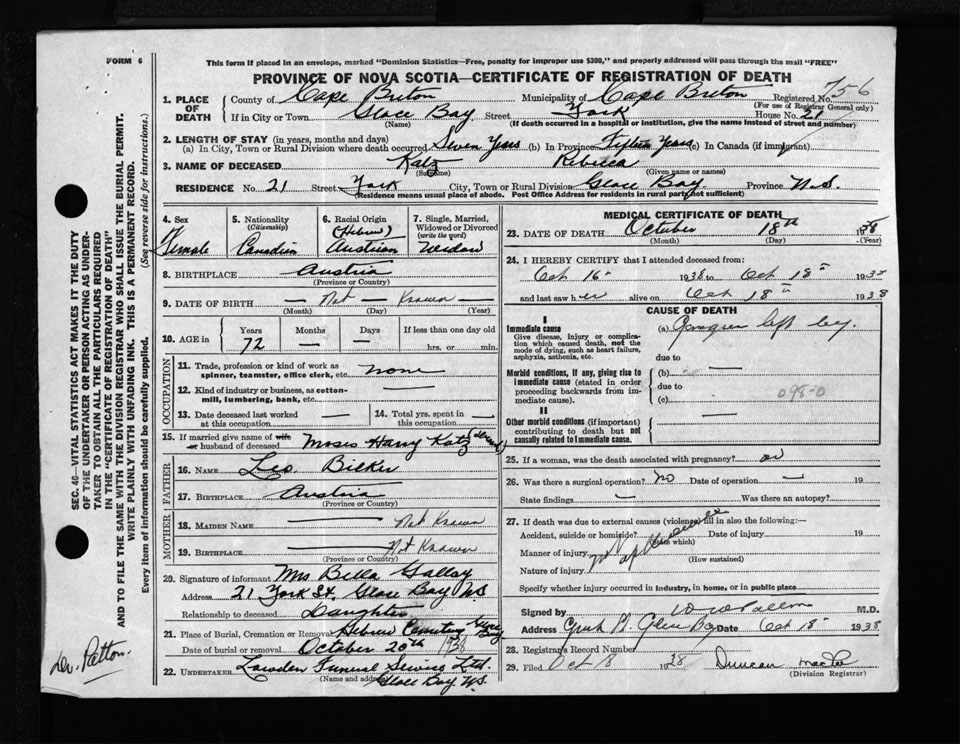 FORM 6
This form if placed in an envelope, marked "Dominion Statistics—Free, penalty for improper use $300," and properly addressed will pass through the mail "FREE"
PROVINCE OF NOVA SCOTIA—CERTIFICATE OF REGISTRATION OF DEATH
1. PLACE OF DEATH County of Cape Breton Municipality of Cape Breton Registered No. 756
(For use of Registrar General only)
If in City or Town Glace Bay Street York House No. 21
(Name) (If death occurred in a hospital or institution, give the name instead of street and number)
2. LENGTH OF STAY (in years, months and days)
(a) In City, Town or Rural Division where death occurred Seven Years (b) In Province Fifteen Years (c) In Canada (if immigrant)
3. NAME OF DECEASED Katz Rebecca
(Surname) (Given name or names)
RESIDENCE No. 21 Street York City, Town or Rural Division Glace Bay Province N.S.
(Residence means usual place of abode. Post Office Address for residents in rural parts not sufficient)
4. Sex Female
5. Nationality (Citizenship) Canadian
6. Racial Origin (Hebrew) Austrian
7. Single, Married, Widowed or Divorced (write the word) Widow
8. BIRTHPLACE Austria
(Province or Country)
9. DATE OF BIRTH — Not — Known —
(Month) (Day) (Year)
10. AGE in Years 72 Months — Days — If less than one day old hrs. or min.
OCCUPATION
11. Trade, profession or kind of work as spinner, teamster, office clerk, etc. none
12. Kind of industry or business, as cotton-mill, lumbering, bank, etc. —
13. Date deceased last worked at this occupation —
14. Total yrs. spent in this occupation —
15. If married give name of wife or husband of deceased Moses Harry Katz
FATHER
16. NAME Leo
17. BIRTHPLACE Austria
(Province or Country)
MOTHER
18. MAIDEN NAME — Not Known
19. BIRTHPLACE — Not Known
(Province or Country)
20. Signature of informant Mrs Bella Gallay
Address 21 York St. Glace Bay NS
Relationship to deceased Daughter
21. Place of Burial, Cremation or Removal Hebrew Cemetery Glace Bay
Date of burial or removal October 20th 1938
22. UNDERTAKER Lowden Funeral Service Ltd.
(Name and address) Glace Bay N.S.
MEDICAL CERTIFICATE OF DEATH
23. DATE OF DEATH October 18th 1938
(Month) (Day) (Year)
24. I HEREBY CERTIFY that I attended deceased from:
Oct 16 1938 to Oct 18 1938
and last saw her alive on Oct 18 1938
CAUSE OF DEATH
I
Immediate cause
Give disease, injury, or complication which caused death, not the mode of dying, such as heart failure, asphyxia, asthenia, etc.
(a) left leg.
due to
Morbid conditions, if any, giving rise to immediate cause (stated in order proceeding backwards from immediate cause).
(b) —
due to
(c) 098-0
II
Other morbid conditions (if important) contributing to death but not causally related to immediate cause. —
25. If a woman, was the death associated with pregnancy? no
26. Was there a surgical operation? no Date of operation — 19
State findings — Was there an autopsy?
27. If death was due to external causes (violence) fill in also the following:—
Accident, suicide or homicide? Date of injury 19
(State which)
Manner of injury
(How sustained)
Nature of injury
Specify whether injury occurred in industry, in home, or in public place
Signed by M.D.
Address Date Oct 18 1938
28. Registrar's Record Number
29. Filed Oct 18 1938 Duncan
(Division Registrar)
SEC. 46—VITAL STATISTICS ACT MAKES IT THE DUTY OF THE UNDERTAKER OR PERSON ACTING AS UNDERTAKER TO OBTAIN ALL THE PARTICULARS REQUIRED IN THE "CERTIFICATE OF REGISTRATION OF DEATH"
AND TO FILE THE SAME WITH THE DIVISION REGISTRAR WHO SHALL ISSUE THE BURIAL PERMIT.
WRITE PLAINLY WITH UNFADING INK. THIS IS A PERMANENT RECORD.
Every item of information should be carefully supplied. (See reverse side for instructions.)
Dr. Patton.